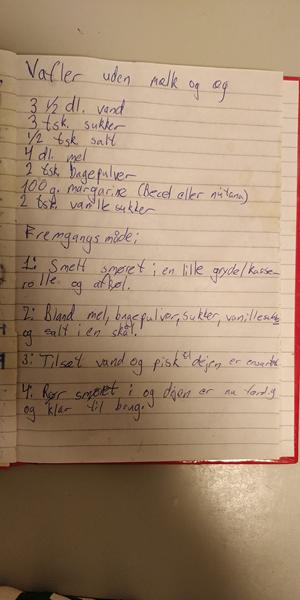 Vafler uden mælk og æg
3 1/2 dl. vand
3 tsk. sukker
1/2 tsk salt
4 dl. mel
2 tsk bagepulver
100 g. margarine (Becel eller nutana)
2 tsk. vanillesukker
Fremgangsmåde;
1: Smelt smøret i en lille gryde/kasse-
rolle og afkøl.
2: Bland mel, bagepulver, sukker, vanillesukker
og salt i en skål.
3: Tilsæt vand og pisk til dejen er ensartet
4: Rør smøret i og dejen er nu færdig
og klar til brug.